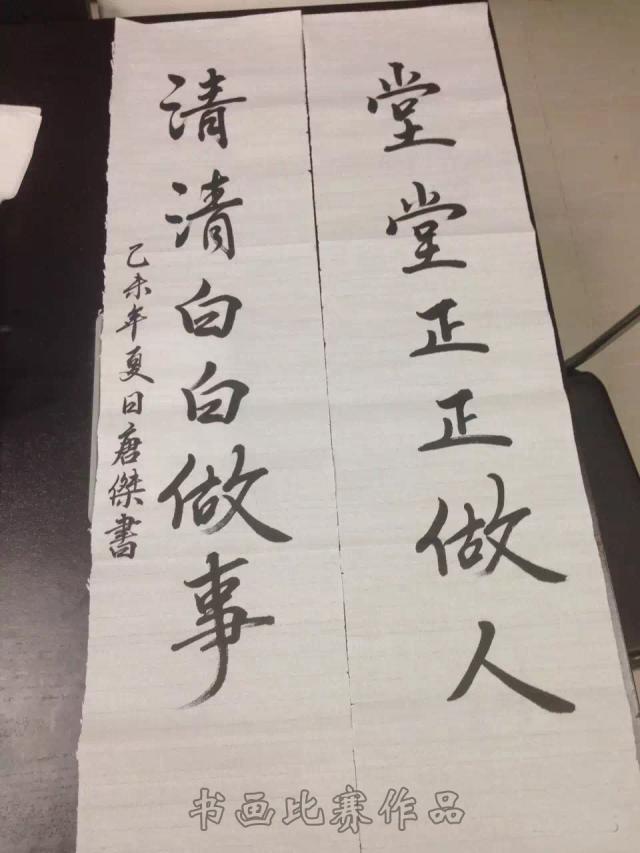 堂堂正正做人
清清白白做事
乙未年夏日唐傑書
书画比赛作品